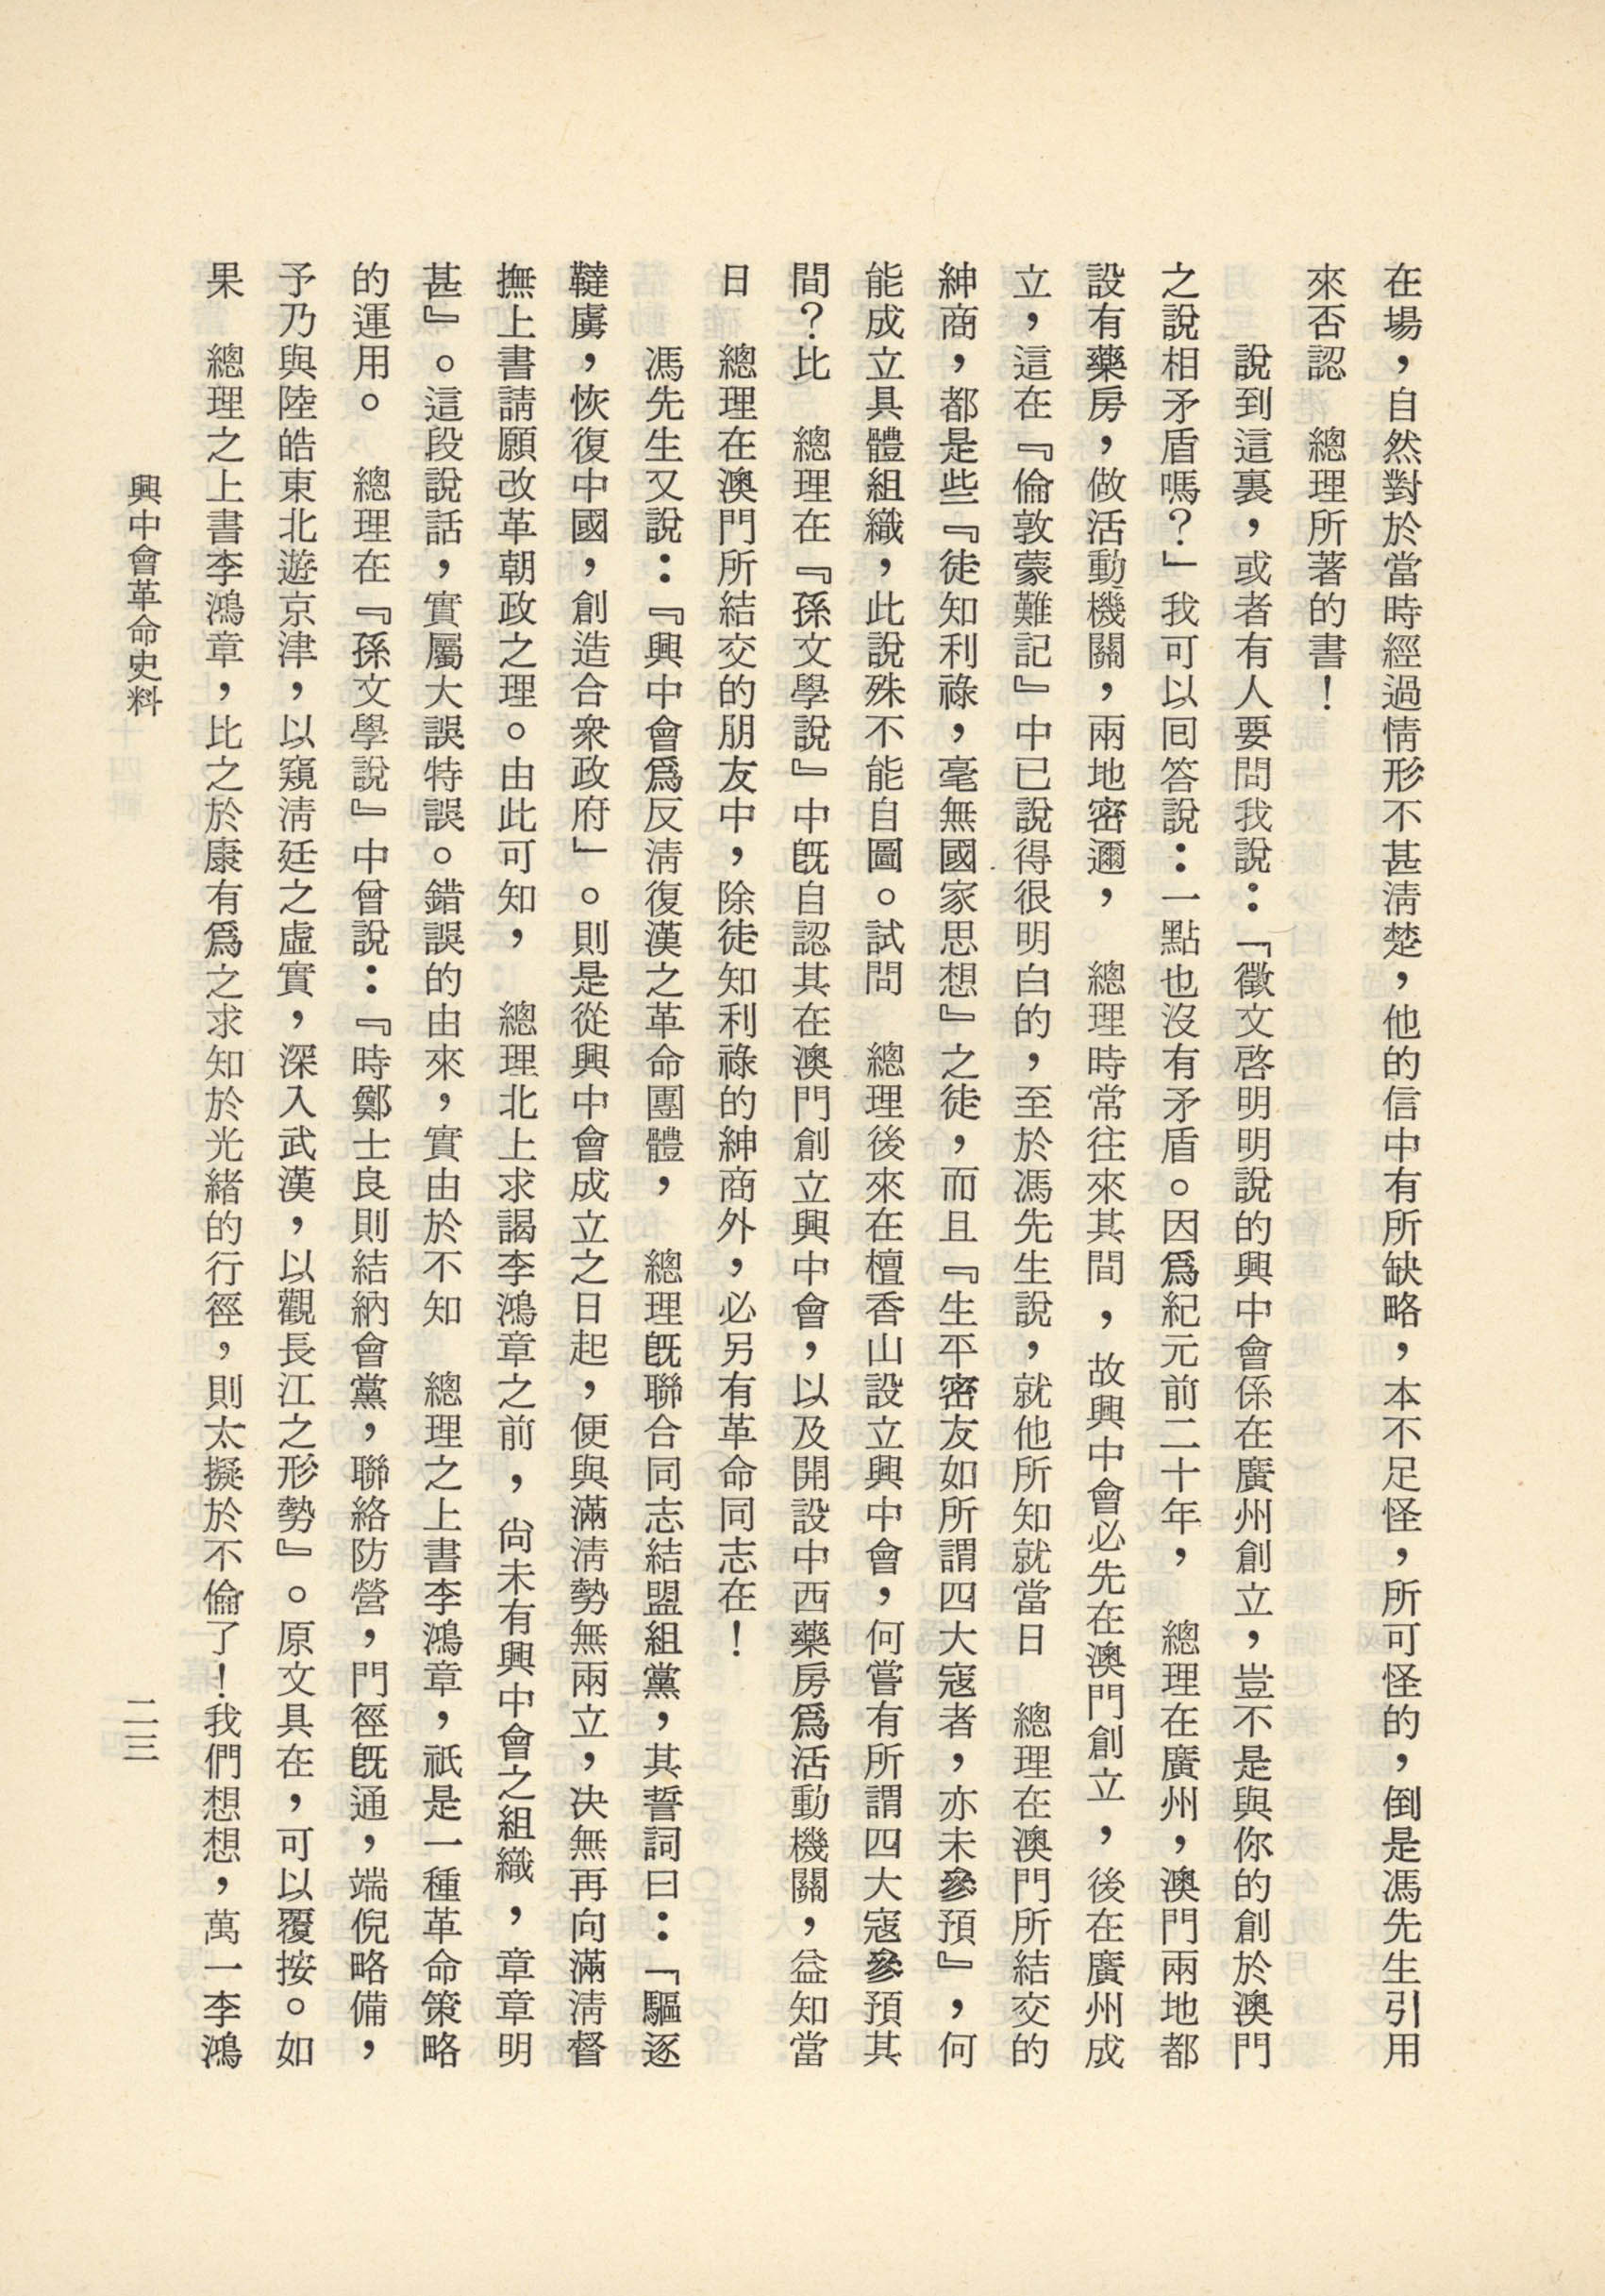 在場，自然對於當時經過情形不甚清楚，他的信中有所缺略，本不足怪，所可怪的，倒是馮先生引用
來否認　總理所著的書！
　　說到這裏，或者有人要問我說：「徵文啓明明說的興中會係在廣州創立，豈不是與你的創於澳門
之說相矛盾嗎？」我可以回答說：一點也沒有矛盾。因爲紀元前二十年，　總理在廣州，澳門兩地都
設有藥房，做活動機關，兩地密邇，　總理時常往來其間，故興中會必先在澳門創立，後在廣州成
立，這在『倫敦蒙難記』中已說得很明白的，至於馮先生說，就他所知就當日　總理在澳門所結交的
紳商，都是些『徒知利祿，毫無國家思想』之徒，而且『生平密友如所謂四大寇者，亦未參預』，何
能成立具體組織，此說殊不能自圖。試問　總理後來在檀香山設立興中會，何嘗有所謂四大寇參預其
間？比　總理在『孫文學說』中旣自認其在澳門創立興中會，以及開設中西藥房爲活動機關，益知當
日　總理在澳門所結交的朋友中，除徒知利祿的紳商外，必另有革命同志在！
　　馮先生又說：『興中會爲反淸復漢之革命團體，　總理旣聯合同志結盟組黨，其誓詞曰：「驅逐
韃虜，恢復中國，創造合衆政府」。則是從興中會成立之日起，便與滿淸勢無兩立，決無再向滿淸督
撫上書請願改革朝政之理。由此可知，　總理北上求謁李鴻章之前，尙未有興中會之組織，章章明
甚』。這段說話，實屬大誤特誤。錯誤的由來，實由於不知　總理之上書李鴻章，祇是一種革命策略
的運用。　總理在『孫文學說』中曾說：『時鄭士良則結納會黨，聯絡防營，門徑旣通，端倪略備，
予乃與陸皓東北遊京津，以窺淸廷之虛實，深入武漢，以觀長江之形勢』。原文具在，可以覆按。如
果　總理之上書李鴻章，比之於康有爲之求知於光緒的行徑，則太擬於不倫了！我們想想，萬一李鴻
興中會革命史料
二三